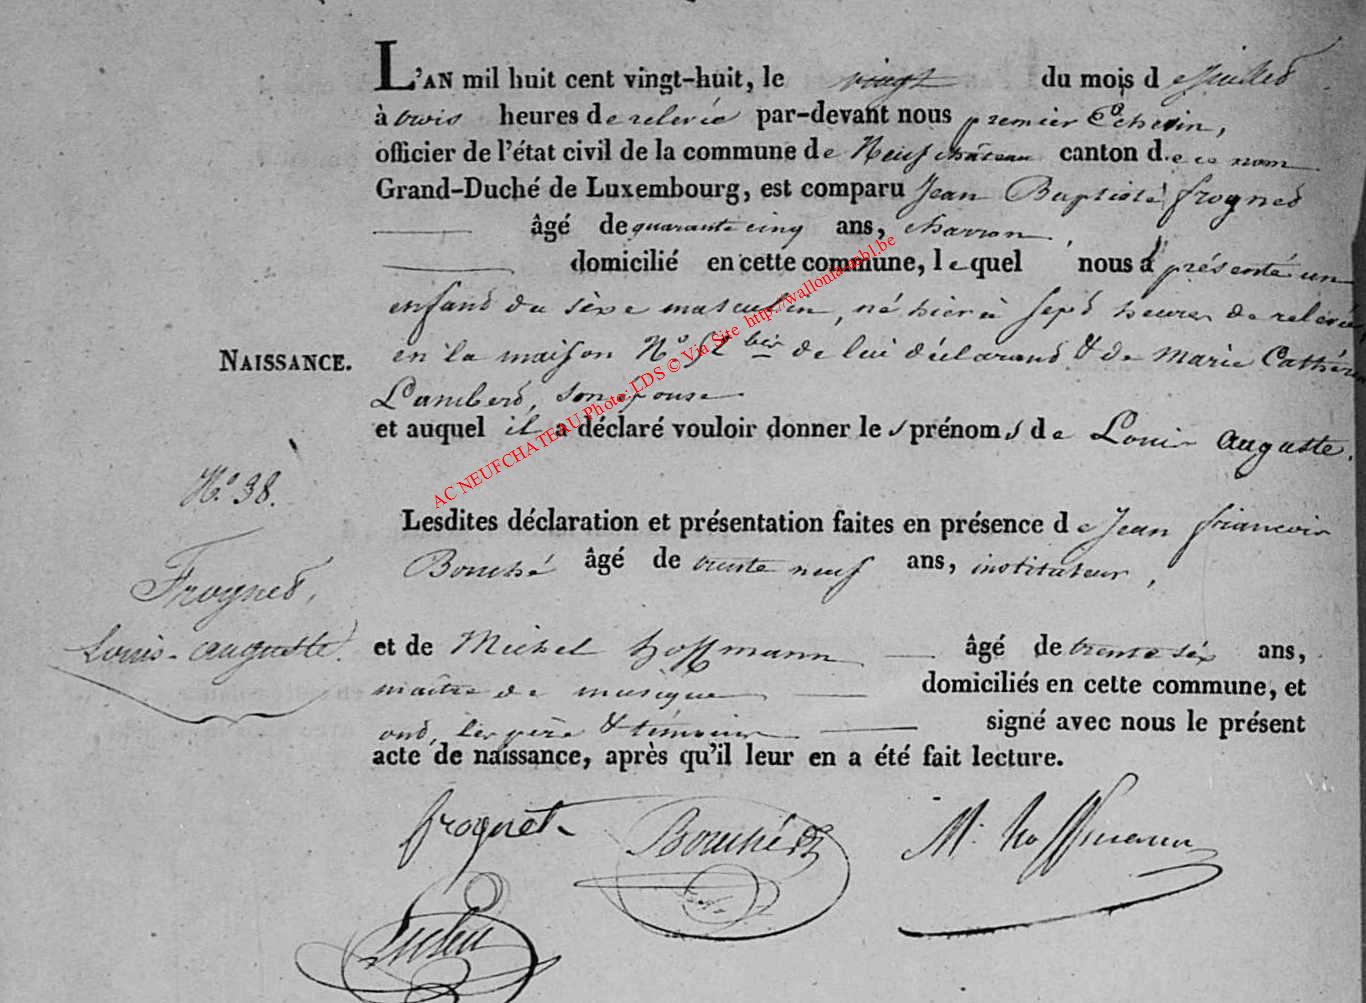 L'AN mil huit cent vingt-huit, le vingt du mois de Juillet
à trois heures de relevée par-devant nous premier Echevin,
officier de l'état civil de la commune de Neufchâteau canton de ce nom
Grand-Duché de Luxembourg, est comparu Jean Baptiste frognet
âgé de quarante cinq ans, charron,
domicilié en cette commune, lequel nous a présenté un
enfant du sèxe masculin, né hier à sept heures de relevée
NAISSANCE.
en la maison N.° bis de lui déclarant & de marie Cathérine
Lambert, son épouse
et auquel il a déclaré vouloir donner les prénoms de Louis auguste.
N.° 38.
Frognet,
Louis-auguste.
Lesdites déclaration et présentation faites en présence de Jean françois
Bouché âgé de trente neuf ans, instituteur,
et de Michel hoffmann âgé de trente six ans,
maître de musique domiciliés en cette commune, et
ont, les père & témoins signé avec nous le présent
acte de naissance, après qu'il leur en a été fait lecture.
frognet
Bouché
M. hoffmann
AC NEUFCHATEAU Photo: LDS © Via Site http://wallonia.asbl.be